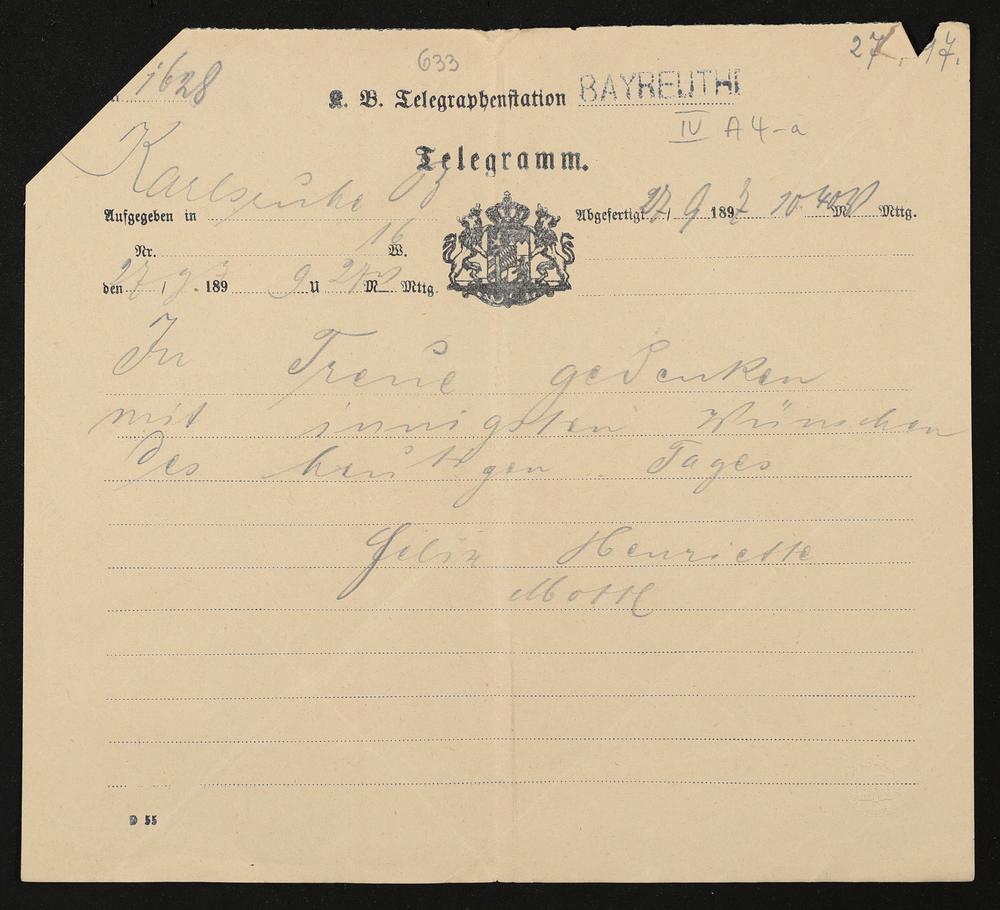 633
27. 17.
1628
K. B. Telegraphenstation BAYREUTH
IV A 4-a
Telegramm.
Karlsruhe B
Aufgegeben in
Abgefertigt 27/9 1897 10 40 M Mttg.
Nr. 16 W.
den 27/9. 1897 9 U 20 M Mttg.
In Treue gedenken
mit innigsten Wünschen
des heutigen Tages
Felix Henriette
Mottl
D 55